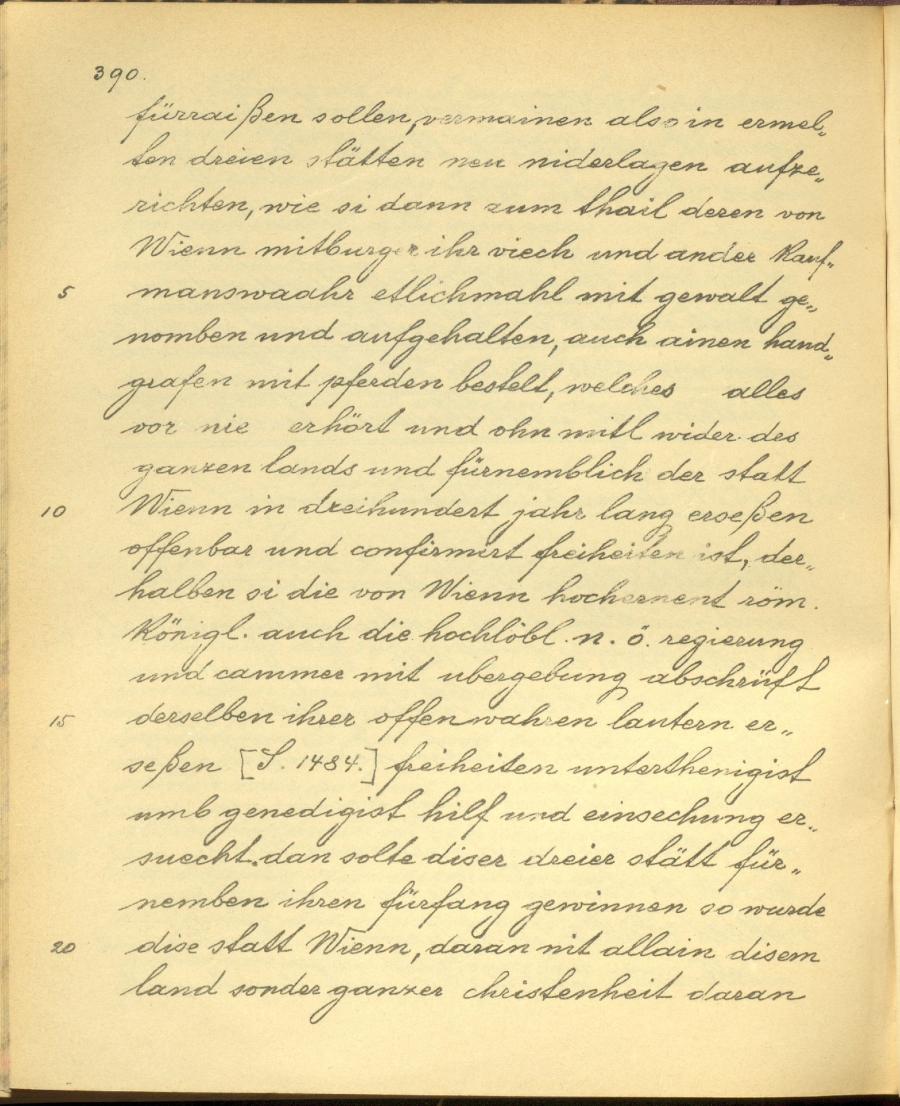 390.
fürraißen sollen, vermainen also in ermel„
ten dreien stätten neu niderlagen aufze„
richten, wie si dann zum thail deren von
Wienn mitburger ihr viech und ander Kauf„
5 manswaahr etlichmahl mit gewalt ge„
nomben und aufgehalten, auch ainen hand„
grafen mit pferden bestelt, welches alles
vor nie erhört und ohn mitl wider des
ganzen lands und fürnemblich der statt
10 Wienn in dreihundert jahr lang erseßen
offenbar und confirmirt freiheiten ist, der„
halben si die von Wienn hochernent röm.
Königl. auch die hochlöbl. n. ö. regierung
und cammer mit ubergebung abschrüft
15 derselben ihrer offenwahren lautern er„
seßen [S. 1484.] freiheiten unterthenigist
umb genedigist hilf und einsechung er„
suecht. dan solte diser dreier stätt für„
nemben ihren fürfang gewinnen so wurde
20 dise statt Wienn, daran nit allain disem
land sonder ganzer christenheit daran